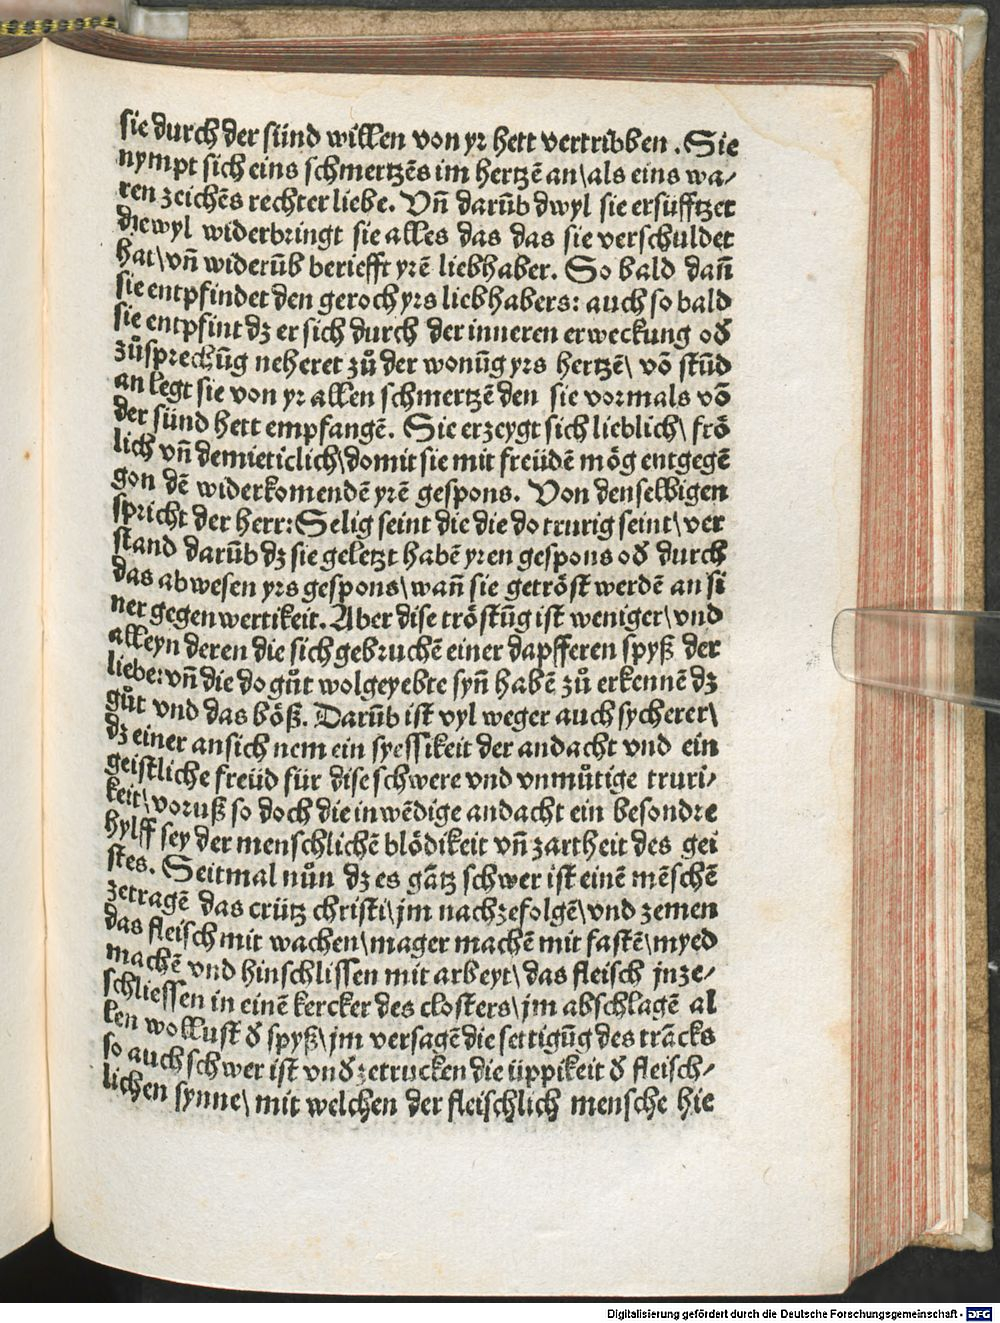 sie durch der sünd willen von yr hett vertribben. Sie
nympt sich eins schmertzēs im hertzē an\als eins wa⸗
ren zeichēs rechter liebe. Vn̄ darūb dwyl sie ersüfftzet
die wyl widerbringt sie alles das das sie verschuldet
hat\vn̄ widerūb beriefft yrē liebhaber. So bald dan̄
sie entpfindet den geroch yrs liebhabers: auch so bald
sie entpfint dz er sich durch der inneren erweckung oď
zůsprechūg neheret zů der wonūg yrs hertzē\ vō stūd
an legt sie von yr allen schmertzē den sie vormals vō
der sünd hett empfangē. Sie erzeygt sich lieblich\ frö
lich vn̄ demieticlich\domit sie mit freüdē mög entgegē
gon dē widerkomendē yrē gespons. Von denselbigen
spricht der herr: Selig seint die die do trurig seint\ ver
stand darūb dz sie geletzt habē yren gespons oď durch
das abwesen yrs gespons\wan̄ sie getröst werdē an si
ner gegenwertikeit. Aber dise tröstūg ist weniger\vnd
alleyn deren die sich gebruchē einer dapfferen spyß der
liebe: vn̄ die do gůt wolgeyebte syn̄ habē zů erkennē dz
gůt vnd das böß. Darūb ist vyl weger auch sycherer\
dz einer an sich nem ein syessikeit der andacht vnd ein
geistliche freüd für dise schwere vnd vnmůtige truri⸗
keit\ voruß so doch die inwēdige andacht ein besondre
hylff sey der menschlichē blödikeit vn̄ zartheit des gei
stes. Seitmal nůn dz es gātz schwer ist einē mēschē
zetragē das crütz christi\jm nachzefolgē\vnd zemen
das fleisch mit wachen\mager machē mit fastē\myed
machē vnd hinschlissen mit arbeyt\ das fleisch jnze⸗
schliessen in einē kercker des closters\jm abschlagē al
len wollust ď spyß\jm versagē die settigūg des trācks
so auch schwer ist vnď zetrucken die üppikeit ď fleisch⸗
lichen synne\ mit welchen der fleischlich mensche hie
Digitalisierung gefördert durch die Deutsche Forschungsgemeinschaft - DFG